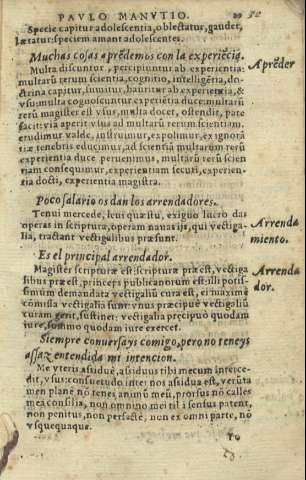 PAVLO MANVTIO.
Specie capitur adolescentia, oblectatur, gaudet,
lætatur: speciem amant adolescentes.
Muchas cosas aprẽdemos con la experiẽcia.
Aprẽder
Multa discuntur, percipiuntur ab experientia:
multarũ rerum scientia, cognitio, intelligẽtia, do-
ctrina capitur, sumitur, hauritur ab experientia, &
vsu: multa cognoscuntur experiẽtia duce: multarũ
rerũ magister est vsus, multa docet, ostendit, pate
facit: via aperit vsus ad multarũ rerum scientiam,
erudimur valde, instruimur, expolimur, ex ignorã
tiæ tenebris educimur, ad scientiã multarum rerũ
experientia duce peruenimus, multarũ rerũ scien
tiam consequimur, experientiam securi, experien-
tia docti, experientia magistra.
Poco salario os dan los arrendadores.
Tenui mercede, leui quæstu, exiguo lucro das
operas in scriptura, operam nauas ijs, qui vectiga-
lia, tractant vectigalibus præsunt.
Arrenda
miento.
Es el principal arrendador.
Arrenda
dor.
Magister scripturæ est: scripturæ præest, vectiga
libus præest, princeps publicanorum est: illi potis-
simum demandata vectigaliũ cura est, ei maximè
comissa vectigalia sunt: vnus præcipuè vectigaliũ
curam gerit, sustinet: vectigalia præcipuò quodam
iure, summo quodam iure exercet.
Siempre conuersays comigo, pero no teneys
assaz entendida mi intencion.
Me vteris assiduè, assiduus tibi mecum interce-
dit, vsus: consuetudo inter nos assidua est, verũta
men planè nõ tenes animũ meũ, prorsus nõ calles
mea consilia, non omnino mei tibi sensus patent,
non penitus, non perfectè, non ex omni parte, nõ
vsquequaque.